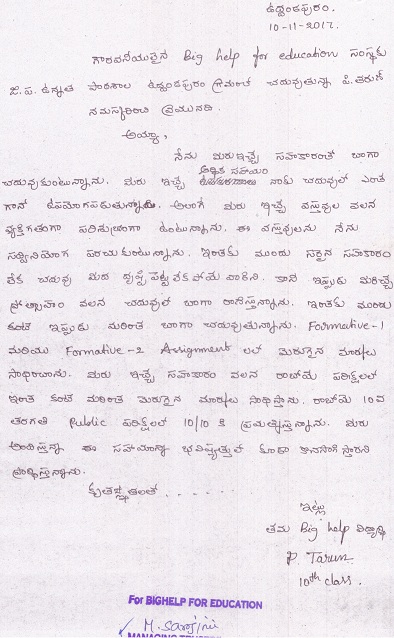 ఉద్దండపురం.
10-11-2017.
గౌరవనీయులైన Big help for education సంస్థకు
జి.ప. ఉన్నత పాఠశాల ఉద్దండపురం గ్రామంలో చదువుతున్న పి. తరుణ్
నమస్కరించి వ్రాయునది.
అయ్యా,
నేను మీరు ఇచ్చే సహకారంతో బాగా
చదువుకుంటున్నాను. మీరు ఇచ్చే ఆర్థిక సహాయం నాకు చదువులో ఎంత
గానో ఉపయోగపడుతున్నాయి. అలాగే మీరు ఇచ్చే వస్తువుల వలన
వ్యక్తిగతంగా పరిశుభ్రంగా ఉంటున్నాను. ఈ వస్తువులను నేను
సద్వినియోగ పరచుకుంటున్నాను. ఇంతకు ముందు సరైన సహకారం
లేక చదువు మీద దృష్టి పెట్టలేక పోయే వాడిని. కానీ ఇప్పుడు మీరిచ్చే
ప్రోత్సాహం వలన చదువులో బాగా రాణిస్తున్నాను. ఇంతకు ముందు
కంటే ఇప్పుడు మరింత బాగా చదువుతున్నాను. Formative-1
మరియు Formative-2 Assignment లలో మెరుగైన మార్కులు
సాధించాను. మీరు ఇచ్చే సహకారం వలన రాబోయే పరీక్షలలో
ఇంత కంటే మరింత మెరుగైన మార్కులు సాధిస్తాను. రాబోయే 10వ
తరగతి Public పరీక్షలలో 10/10 కి ప్రయత్నిస్తున్నాను. మీరు
అందిస్తున్న ఈ సహాయాన్ని భవిష్యత్తులో కూడా కొనసాగిస్తారని
ప్రార్థిస్తున్నాను.
కృతజ్ఞతలతో . . . . . .
ఇట్లు
తమ Big help విద్యార్థి
P. Tarun.
10th class.
For BIGHELP FOR EDUCATION
M. Sarojini
MANAGING TRUSTEE